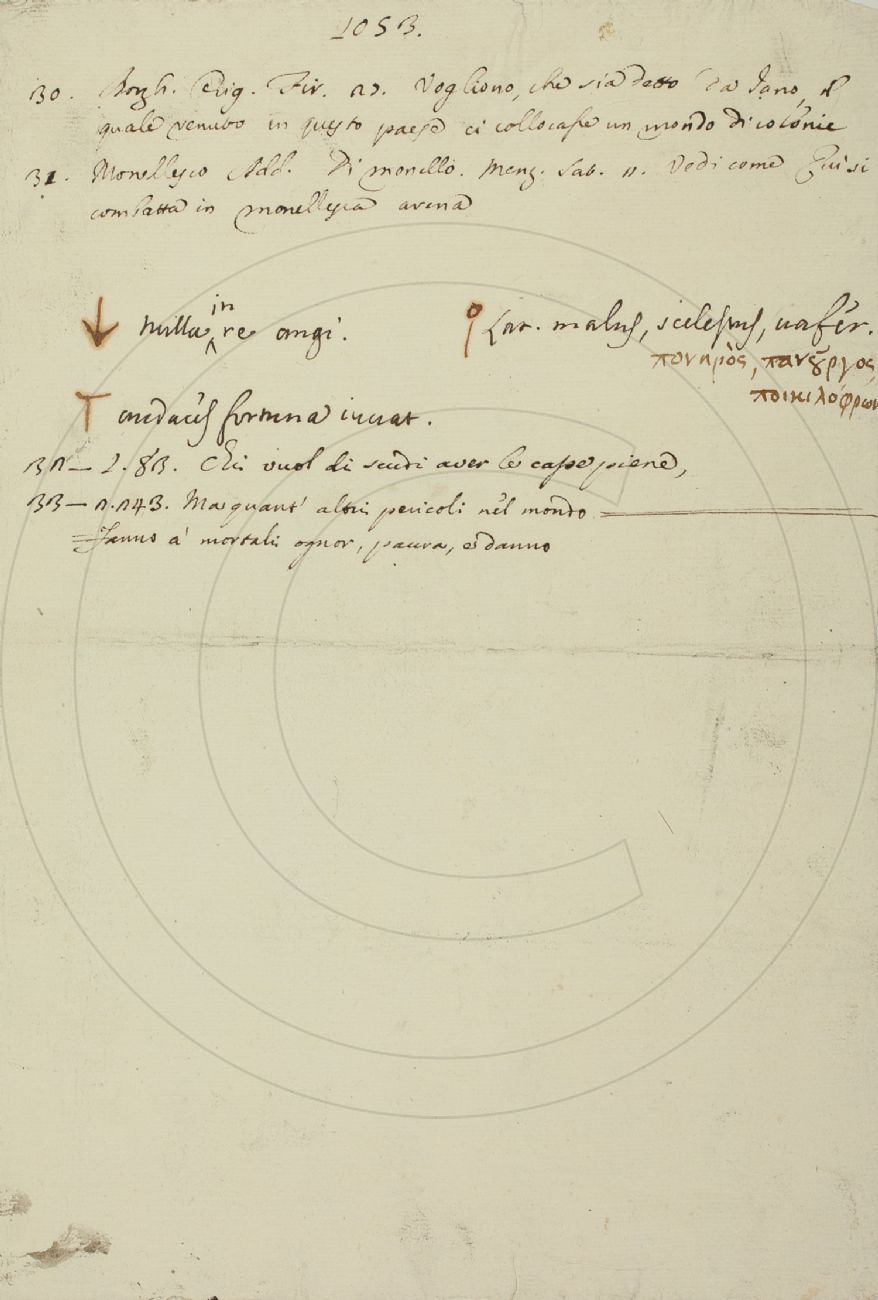 1053.
30. Borgh. Orig. Fir. 27. Vogliono, che sia detto da Jano, il
quale venuto in questo paese ci collocasse un mondo di colonie
31. Monellesco Add. Di monello. Menz. Sat. 2. Vedi come Qui si
combatta in monellesca arena
nulla in re angi.
Lat. malus, scelestus, vafer.
πονηρὸς, πανοῦργος,
ποικιλόφρων
audaces fortuna iuvat.
32 — 2. 83. Chi vuol di scudi aver le casse piene,
33 — 2. 243. Ma quant' altri pericoli nel mondo
Fanno a' mortali ognor, paura, e danno